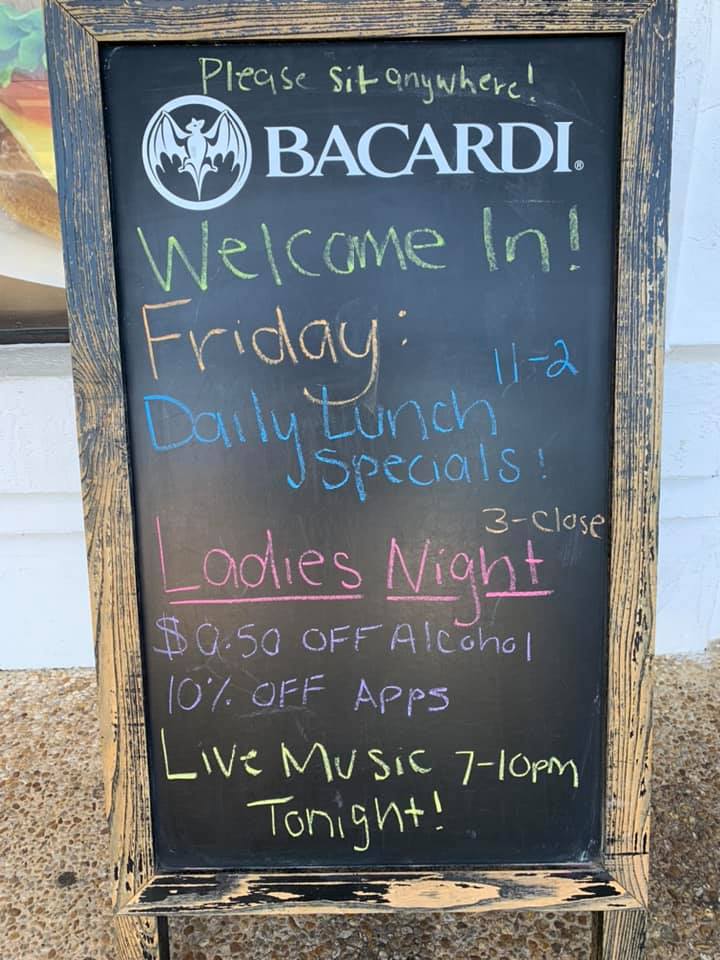 Please sit anywhere!
BACARDI®
Welcome In!
Friday:
11-2
Daily Lunch
Specials!
3-close
Ladies Night
$0.50 OFF Alcohol
10% OFF APPS
Live Music 7-10pm
Tonight!